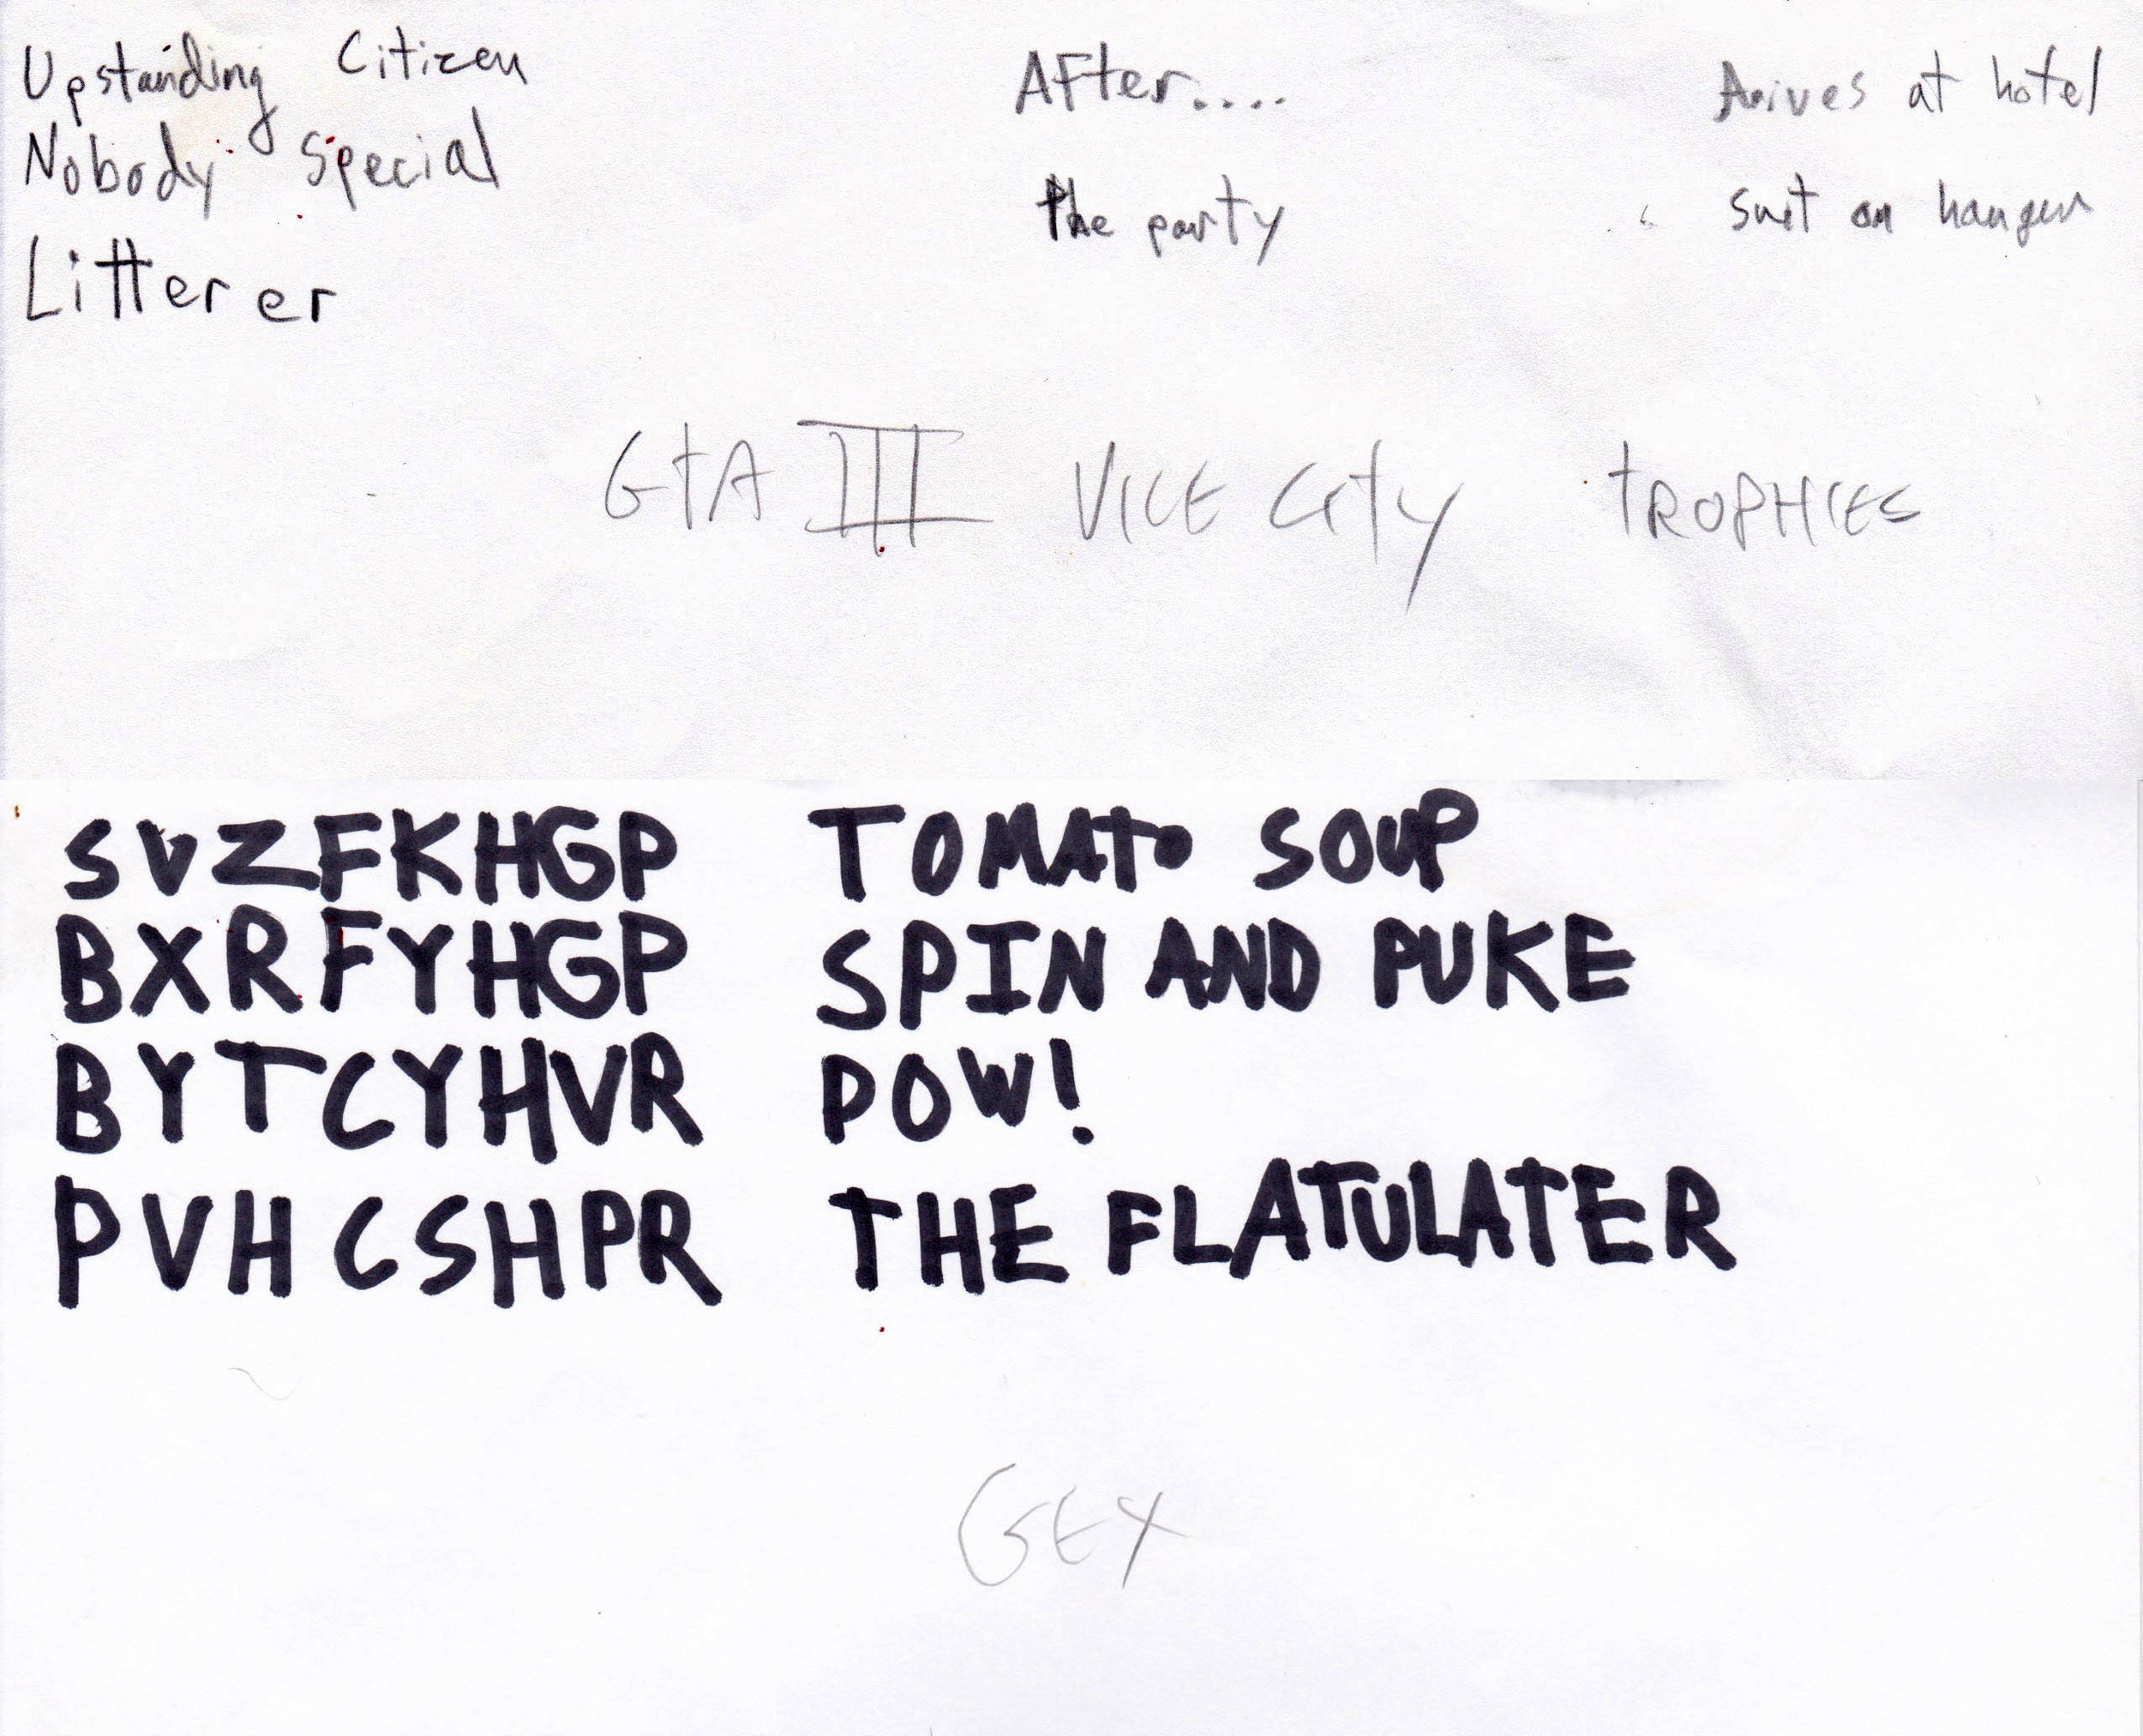 Upstanding Citizen
Nobody Special
Litterer
After....
the party
Arives at hotel
suit on hanger
GtA III Vice City tROPHIES
SVZFKHGP TOMATO SOUP
BXRFYHGP SPIN AND PUKE
BYTCYHVR POW!
PVHCSHPR THE FLATULATER
GEX